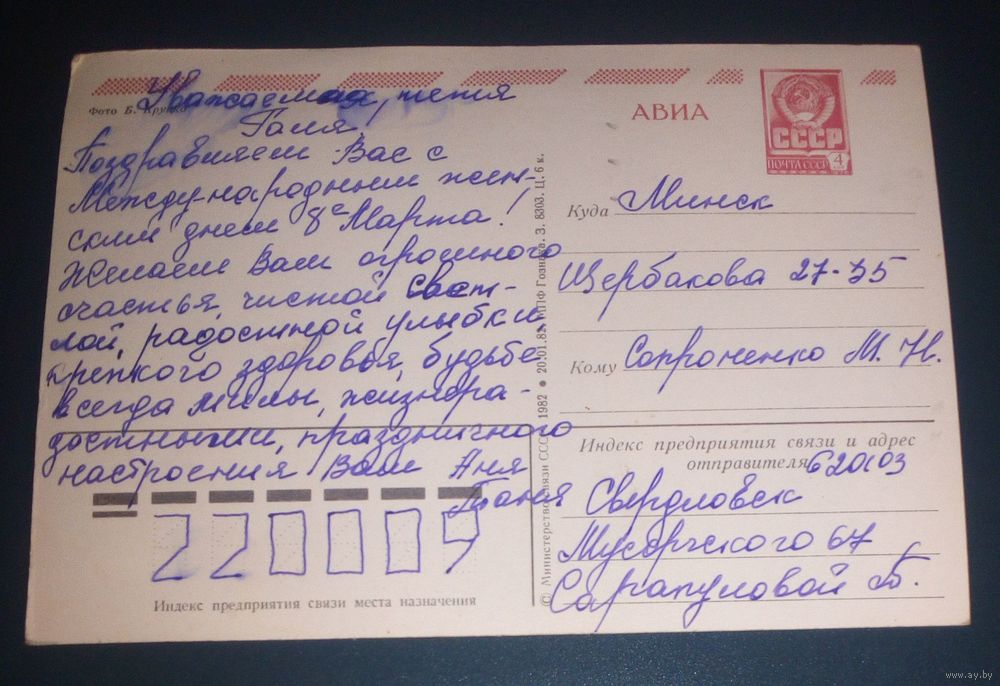 Фото Б. Круцко
Уважаемая, тетя
Галя,
Поздравляем Вас с
Международным жен-
ским днем 8е Марта!
Желаем Вам огромного
счастья, чистой свет-
лой, радостной улыбки
крепкого здоровья, будьте
всегда милы, жизнера-
достными, праздничного
настроения Вам Аня
Таня
220009
Индекс предприятия связи места назначения
© Министерство связи СССР, 1982 • 20.01.82. МПФ Гознака. З. 8303. Ц. 6 к.
АВИА
СССР
ПОЧТА СССР 4
Куда Минск
Щербакова 27-35
Кому Сопроненко М. Н.
Индекс предприятия связи и адрес
отправителя 620103
Свердловск
Мусоргского 67
Сарапуловой Т.
www.ay.by